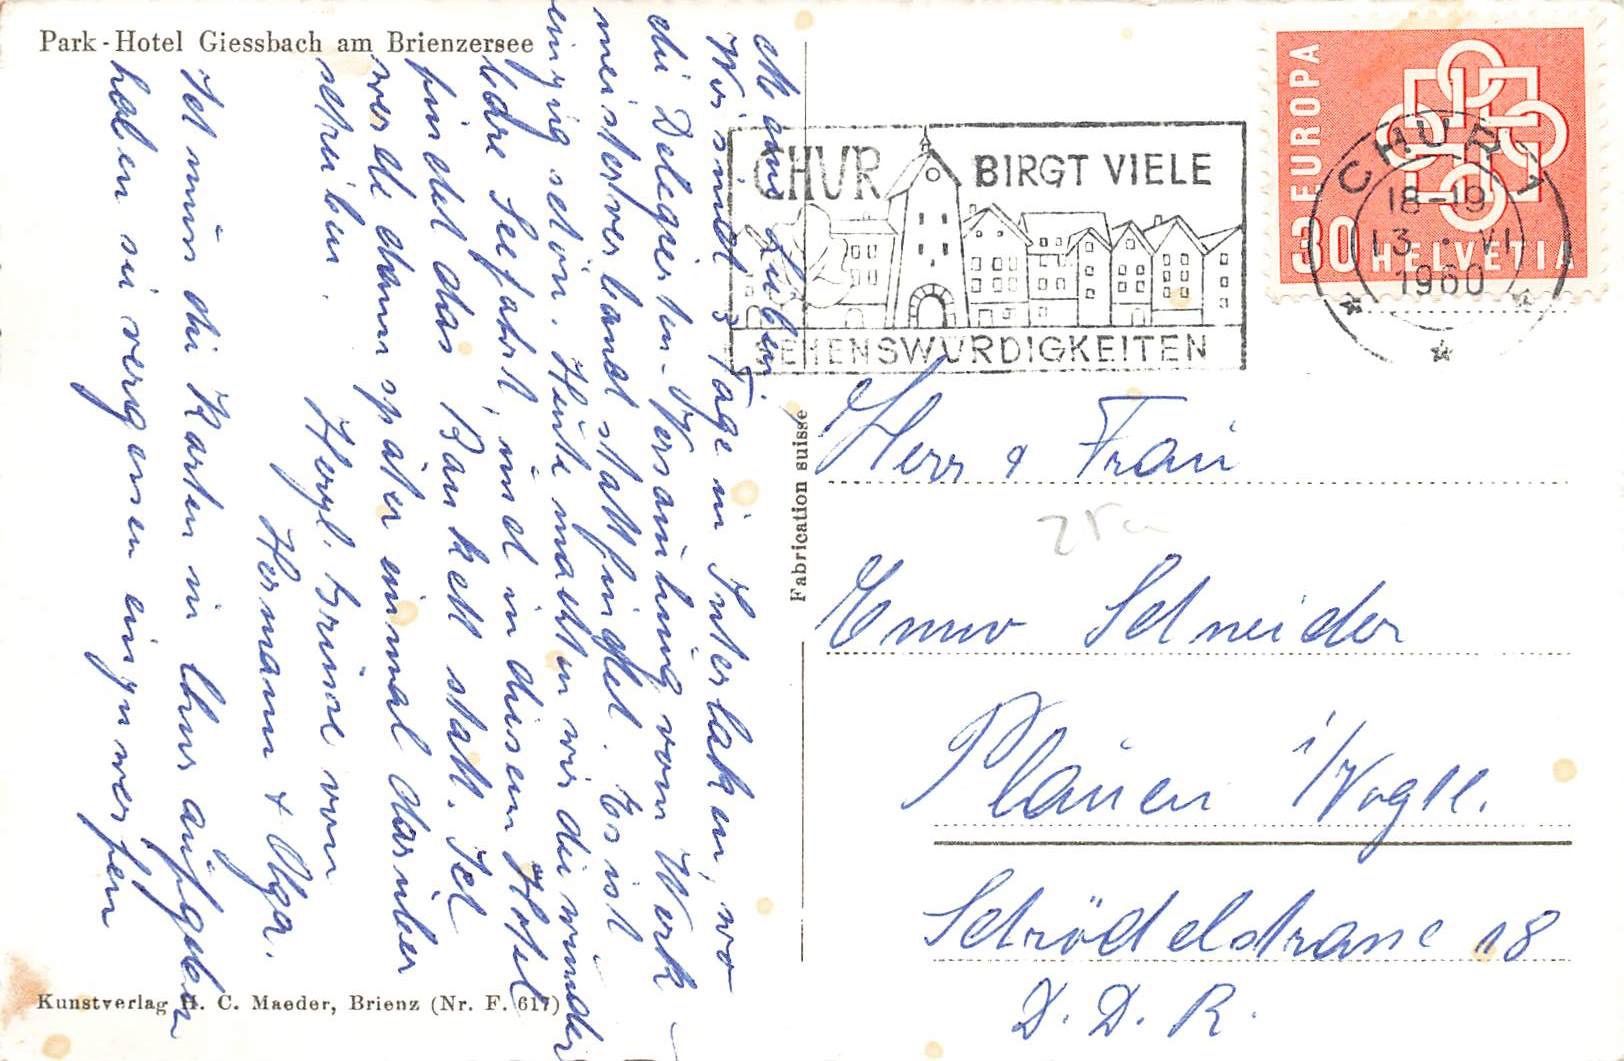 Park-Hotel Giessbach am Brienzersee
Meine Lieben
Wir sind 3 Tage in Interlaken, wo
die Delegierten-Versammlung vom Werk-
meisterverband stattfindet. Es ist
einzig schön. Heute machten wir die wunder
bare Seefahrt, und in diesem Hotel
findet das Bankett statt. Ich
werde dann später einmal darüber
schreiben.
Herzl. Grüsse von
Hermann & Olga.
Ich muss die Karten in Chur aufgeben
haben sie vergessen einzuwerfen
Kunstverlag H. C. Maeder, Brienz (Nr. F. 617)
Fabrication suisse
CHUR BIRGT VIELE
SEHENSWÜRDIGKEITEN
EUROPA
30 HELVETIA
CHUR 1
18-19
13.-VI
1960
Herr & Frau
Schneider
Plauen i/Vogtl.
18
D. D. R.